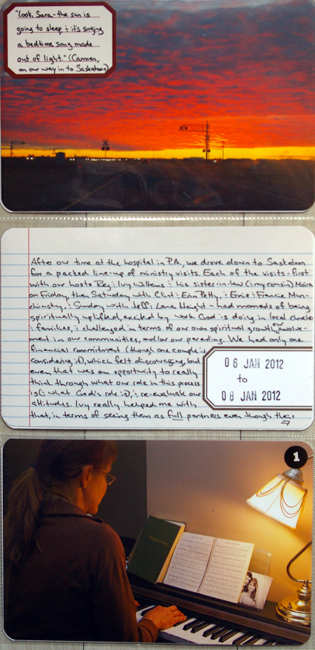 "Look, Sara - the sun is
going to sleep & it's singing
a bedtime song made
out of light." (Carmen,
on our way in to Saskatoon)
After our time at the hospital in P.A., we drove down to Saskatoon
for a packed line-up of ministry visits. Each of the visits - first
with our hosts Reg & Ivy Willems & his sister-in-law (& my cousin) Moira
on Friday, then Saturday with Clint & Erin Petty, & Ernie & Francie
& Sunday with Jeff & Lana Wright - had moments of being
spiritually uplifted, excited by work God is doing in local
& families, & challenged in terms of our own spiritual growth, our involve-
ment in our communities, and/or our parenting. We had only one
financial commitment (though one couple is
considering it), which felt discouraging, but
even that was an opportunity to really
think through what our role in this process
is (& what God's role is), & re-evaluate our
attitudes. Ivy really helped me with
that, in terms of seeing them as full partners even though their
06 JAN 2012
to
08 JAN 2012
1